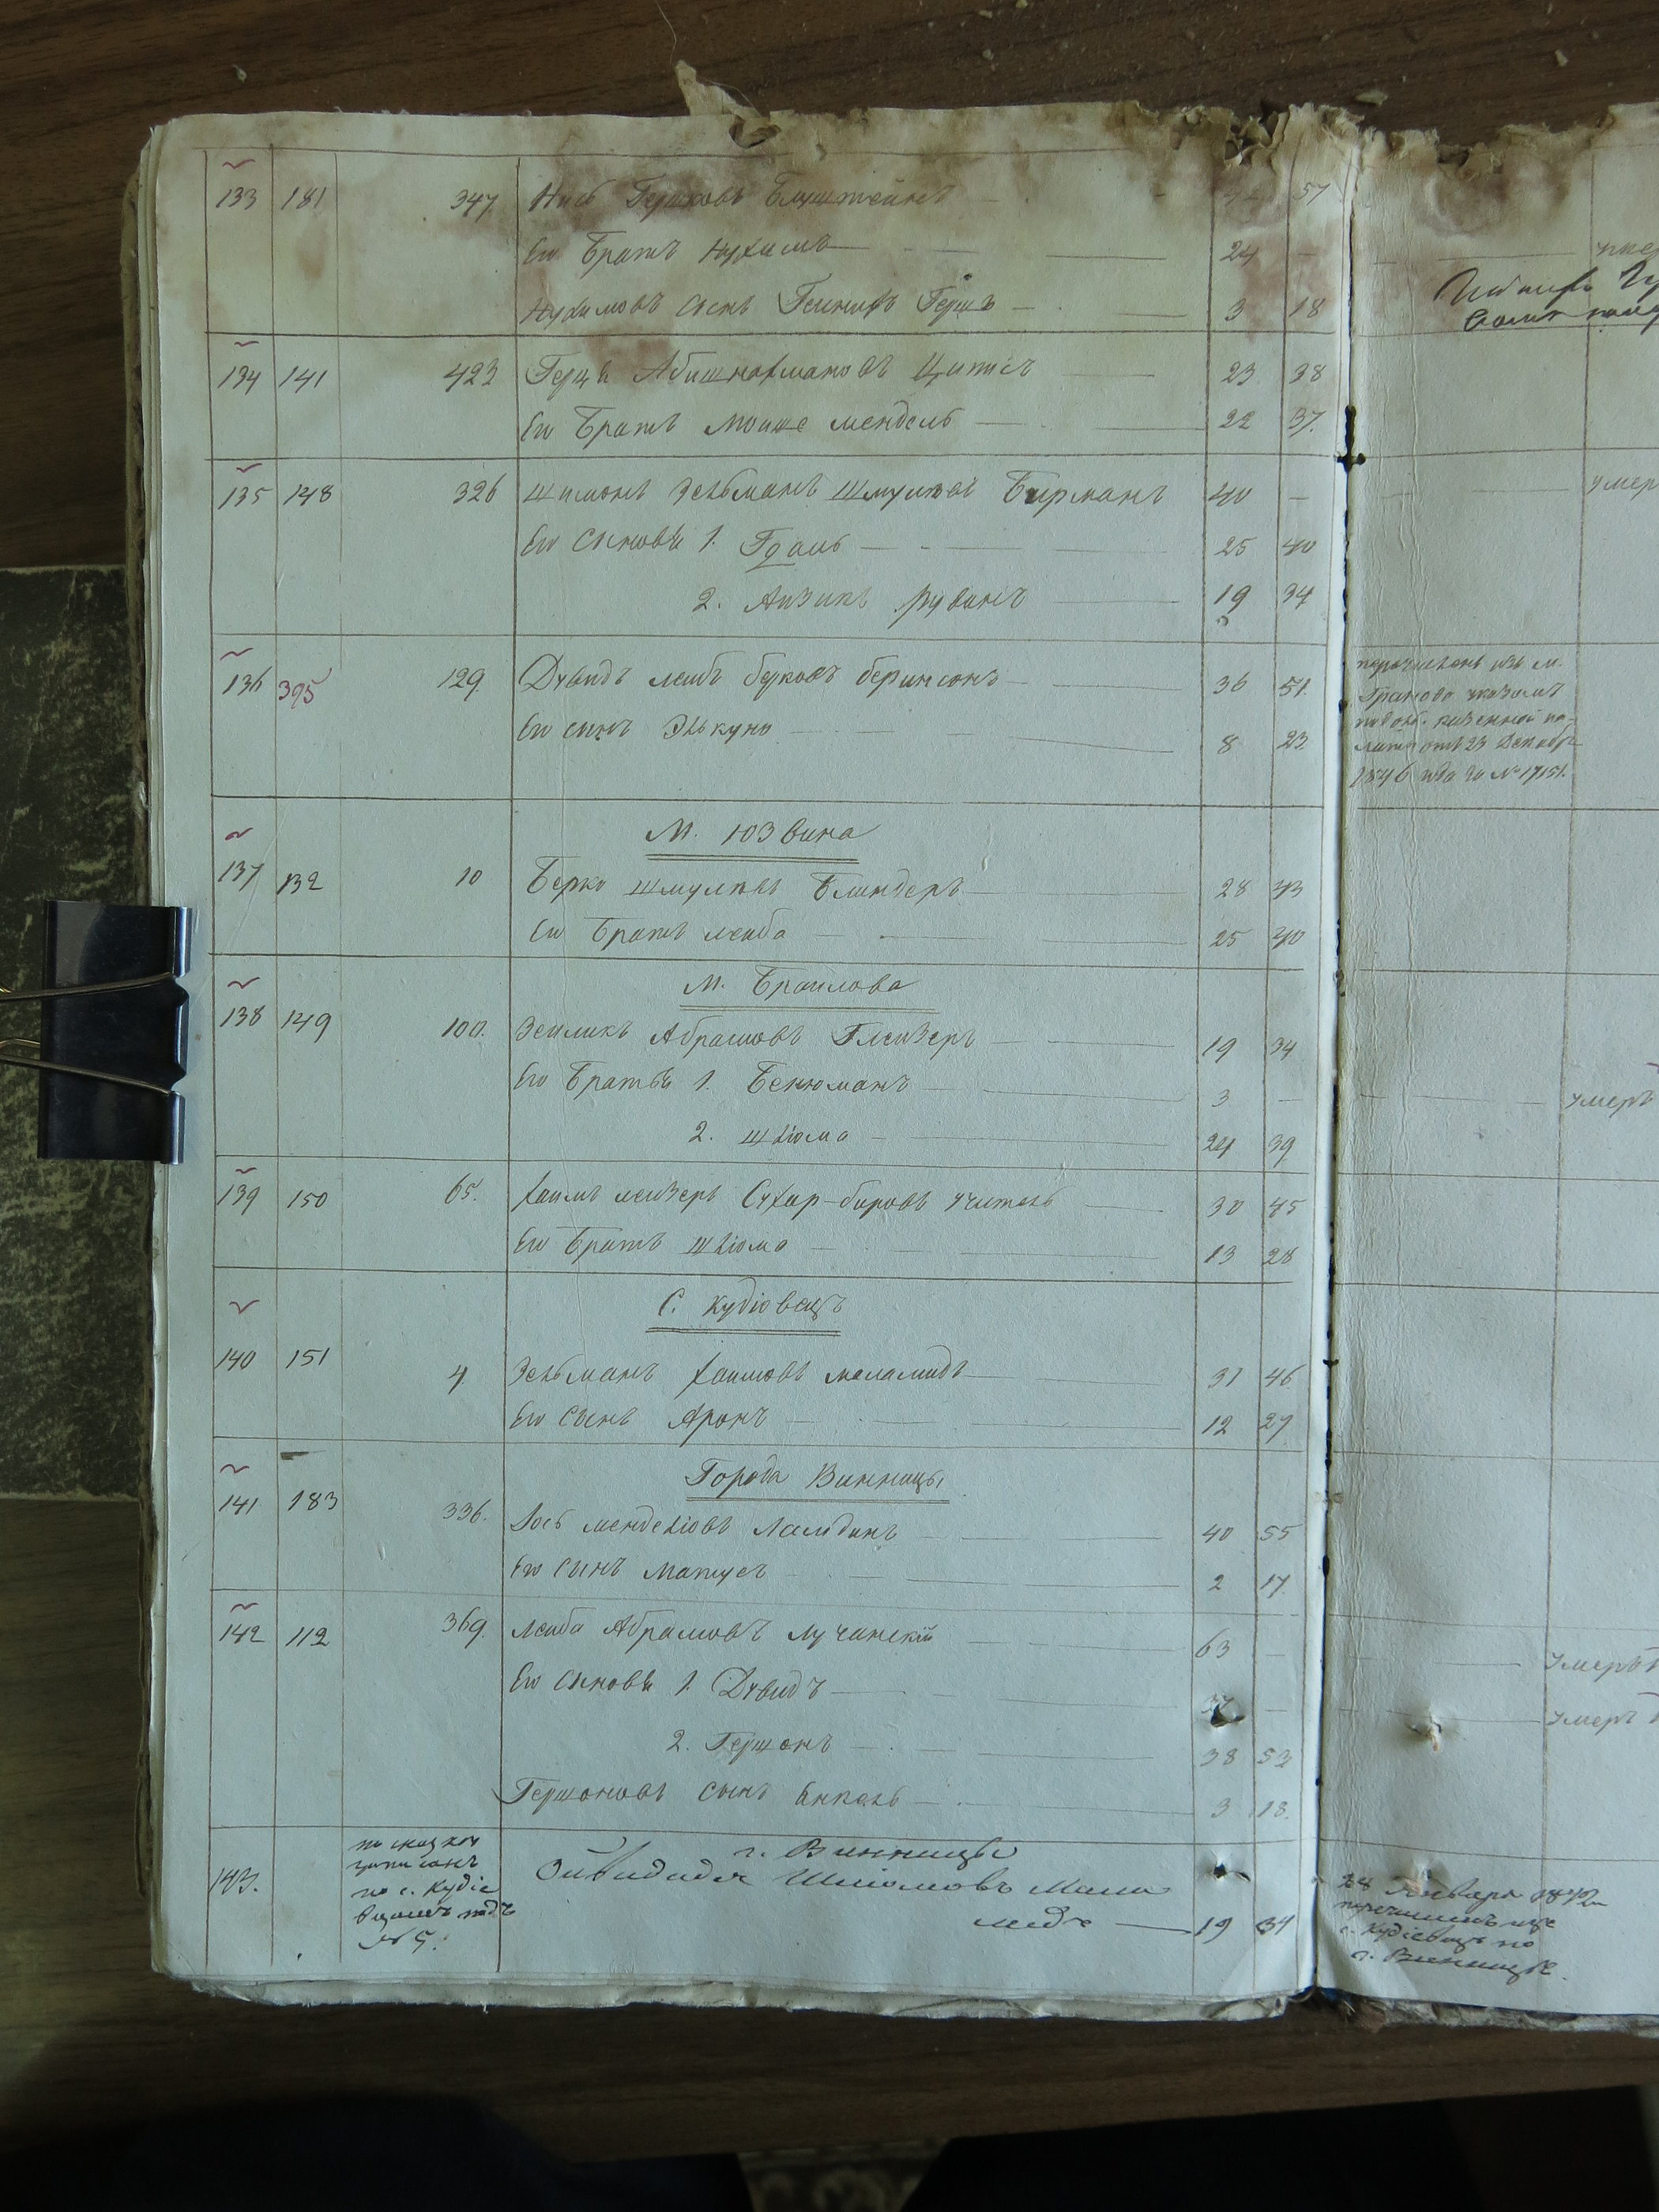 133 181 347 Гершковъ Блуштейнъ 57
Его Братъ Нухимъ 24 —
Нухимовъ Сынъ Гершъ 3 18
134 141 423 Герцъ Абишнахмановъ Цитисъ 23 38
Его Братъ Мошке Мендель 22 37.
135 148 326 Шимонъ Зельманъ Шмулевъ Бирманъ 40 —
Его Сыновья 1. 25 40
2. Аизикъ Рувинъ 19 34
136 395 129. Дувидъ Леибъ Берковъ Беринсонъ 36 51.
Его сынъ Элькуно 8 23.
М. Юзвина
137 132 10 Берко Шмулевъ Блиндеръ 28 43
Его Братъ Леиба 25 40
М. Браилова
138 149 100. Зеиликъ Абрамовъ Глейзеръ 19 34
Его Братья 1. Бенюманъ 3 —
2. Шліома 24 39
139 150 65. Хаимъ Леизеръ Сухар-беровъ Учитель 30 45
Его Братъ Шліома 13 28
С. Кудіовецъ
140 151 4. Зельманъ Хаимовъ Меламидъ 31 46
Его Сынъ Аронъ 12 27
Города Винницы
141 183 336. Іось Менделіовъ Ламдинъ 40 55
Его Сынъ Матусъ 2 17.
142 112 369. Леиба Абрамовъ Лучанскій 63 —
Его Сыновья 1. Дувидъ —
2. Гершонъ 38 53
Гершоновъ Сынъ Янкель 3 18.
г. Винницы
143. по сказкѣ
записанъ
по с. Кудіе
вцамъ подъ
№ 5.
Шліомовъ Мала
медъ 19 34
перечисленъ изъ м.
Гранова указомъ
подол. казенной па-
латы отъ 23 Декабр
1846 года за № 17151.
умеръ
28 Января 1842
перечисленъ изъ
с. Кудіевецъ по
г. Винницѣ.